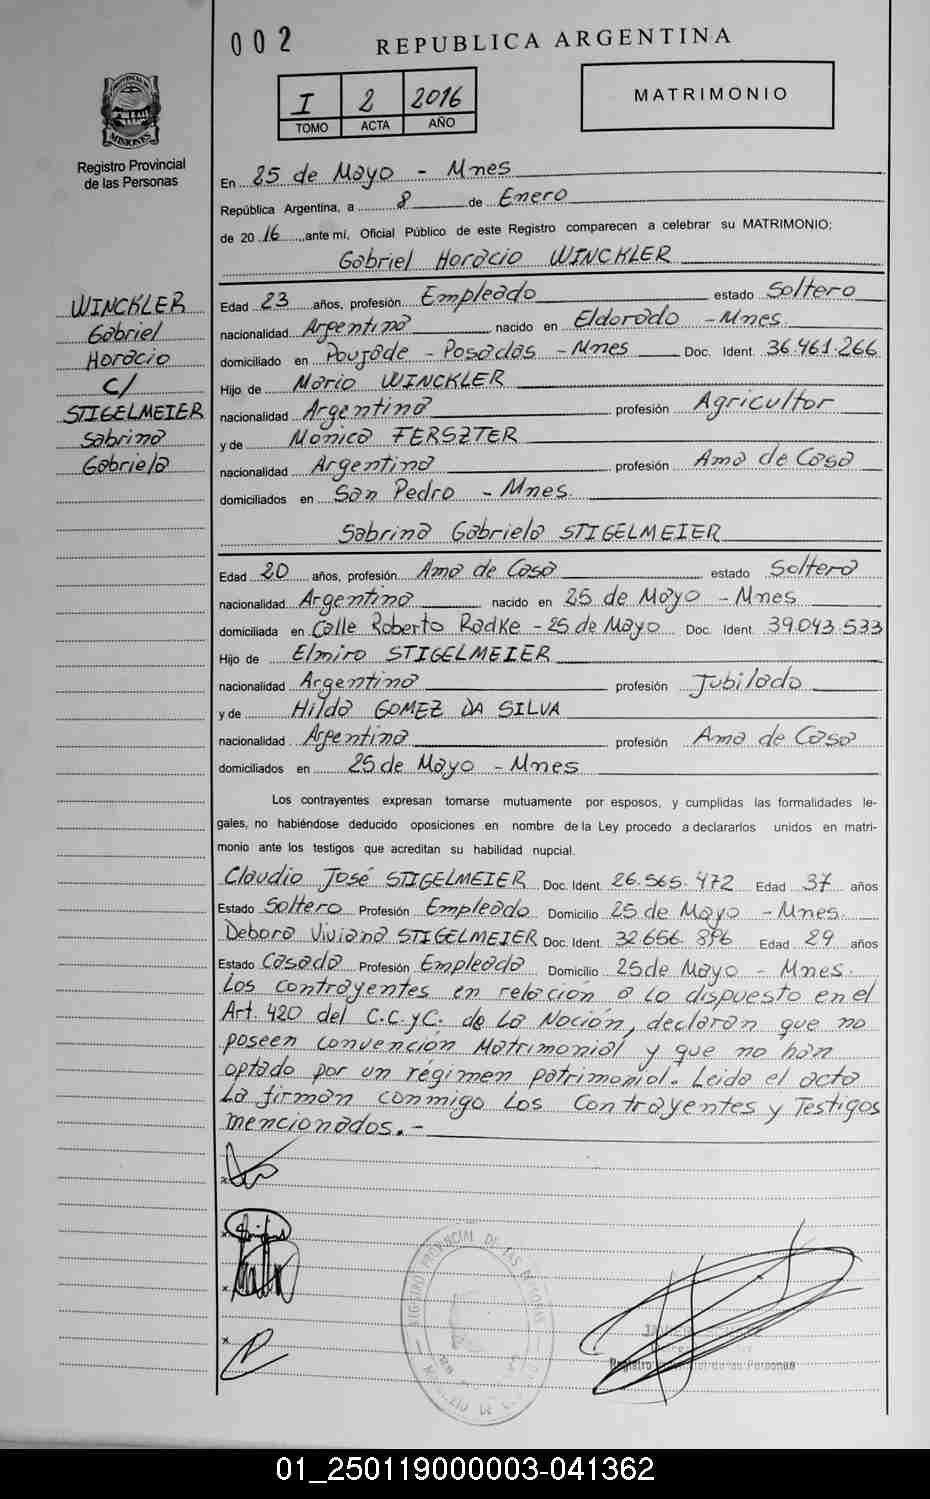 002
REPUBLICA ARGENTINA
I 2 2016
TOMO ACTA AÑO
MATRIMONIO
PROVINCIA DE
MISIONES
Registro Provincial
de las Personas
WINCKLER
Gabriel
Horacio
C/
STIGELMEIER
Sabrina
Gabriela
En 25 de Mayo - Mnes
República Argentina, a 8 de Enero
de 2016, ante mí, Oficial Público de este Registro comparecen a celebrar su MATRIMONIO:
Gabriel Horacio WINCKLER
Edad 23 años, profesión Empleado estado Soltero
nacionalidad Argentina nacido en Eldorado - Mnes.
domiciliado en Poujade - Posadas - Mnes Doc. Ident. 36.461.266
Hijo de Mario WINCKLER
nacionalidad Argentina profesión Agricultor
y de Monica FERSZTER
nacionalidad Argentina profesión Ama de Casa
domiciliados en San Pedro - Mnes.
Sabrina Gabriela STIGELMEIER
Edad 20 años, profesión Ama de Casa estado Soltera
nacionalidad Argentina nacido en 25 de Mayo - Mnes
domiciliada en Calle Roberto Radke - 25 de Mayo Doc. Ident. 39.043.533
Hijo de Elmiro STIGELMEIER
nacionalidad Argentina profesión Jubilado
y de Hilda GOMEZ DA SILVA
nacionalidad Argentina profesión Ama de Casa
domiciliados en 25 de Mayo - Mnes
Los contrayentes expresan tomarse mutuamente por esposos, y cumplidas las formalidades le-
gales, no habiéndose deducido oposiciones en nombre de la Ley procedo a declararlos unidos en matri-
monio ante los testigos que acreditan su habilidad nupcial.
Claudio José STIGELMEIER Doc. Ident. 26.565.472 Edad 37 años
Estado Soltero Profesión Empleado Domicilio 25 de Mayo - Mnes.
Debora Viviana STIGELMEIER Doc. Ident. 32.656.896 Edad 29 años
Estado Casada Profesión Empleada Domicilio 25 de Mayo - Mnes.
Los contrayentes en relación a lo dispuesto en el
Art. 420 del C.C.yC. de La Nación, declaran que no
poseen convención Matrimonial y que no han
optado por un régimen patrimonial. Leida el acta
La firman conmigo Los Contrayentes y Testigos
mencionados.-
x
x
x
x
REGISTRO PROVINCIAL DE LAS PERSONAS
Registro Provincial de las Personas
01_250119000003-041362